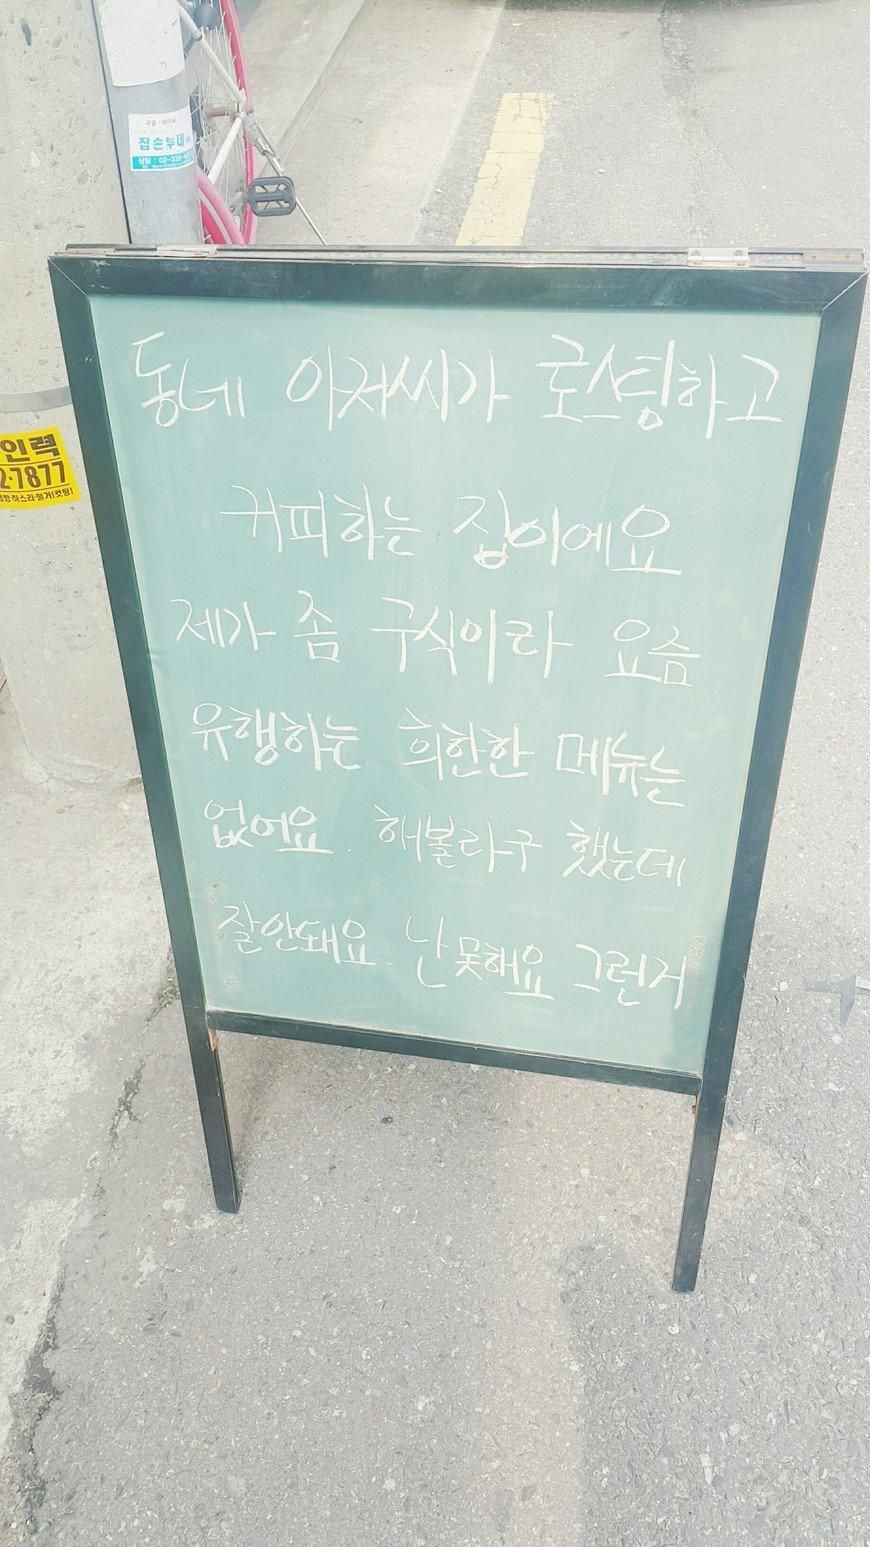 구글·네이버
잡손부대
상담 : 02-335-
인력
2·7877
동네 아저씨가 로스팅하고
커피하는 집이에요
제가 좀 구식이라 요즘
유행하는 희한한 메뉴는
없어요. 해볼라구 했는데
잘안돼요. 난 못해요 그런거